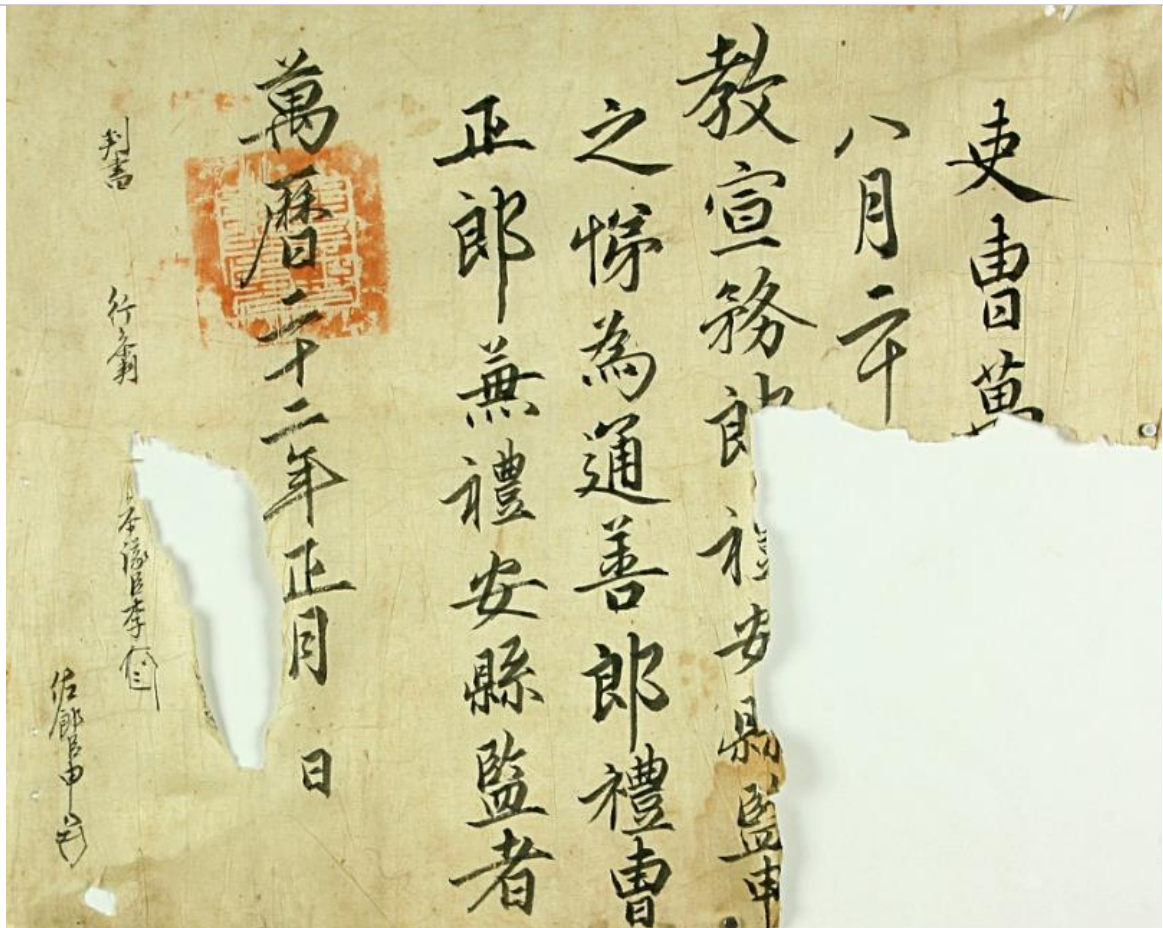 吏曹萬
八月二十
教宣務郎禮安縣監申
之悌為通善郎禮曹
正郎兼禮安縣監者
萬曆二十二年正月 日
判書 行
臣李
佐郎臣申